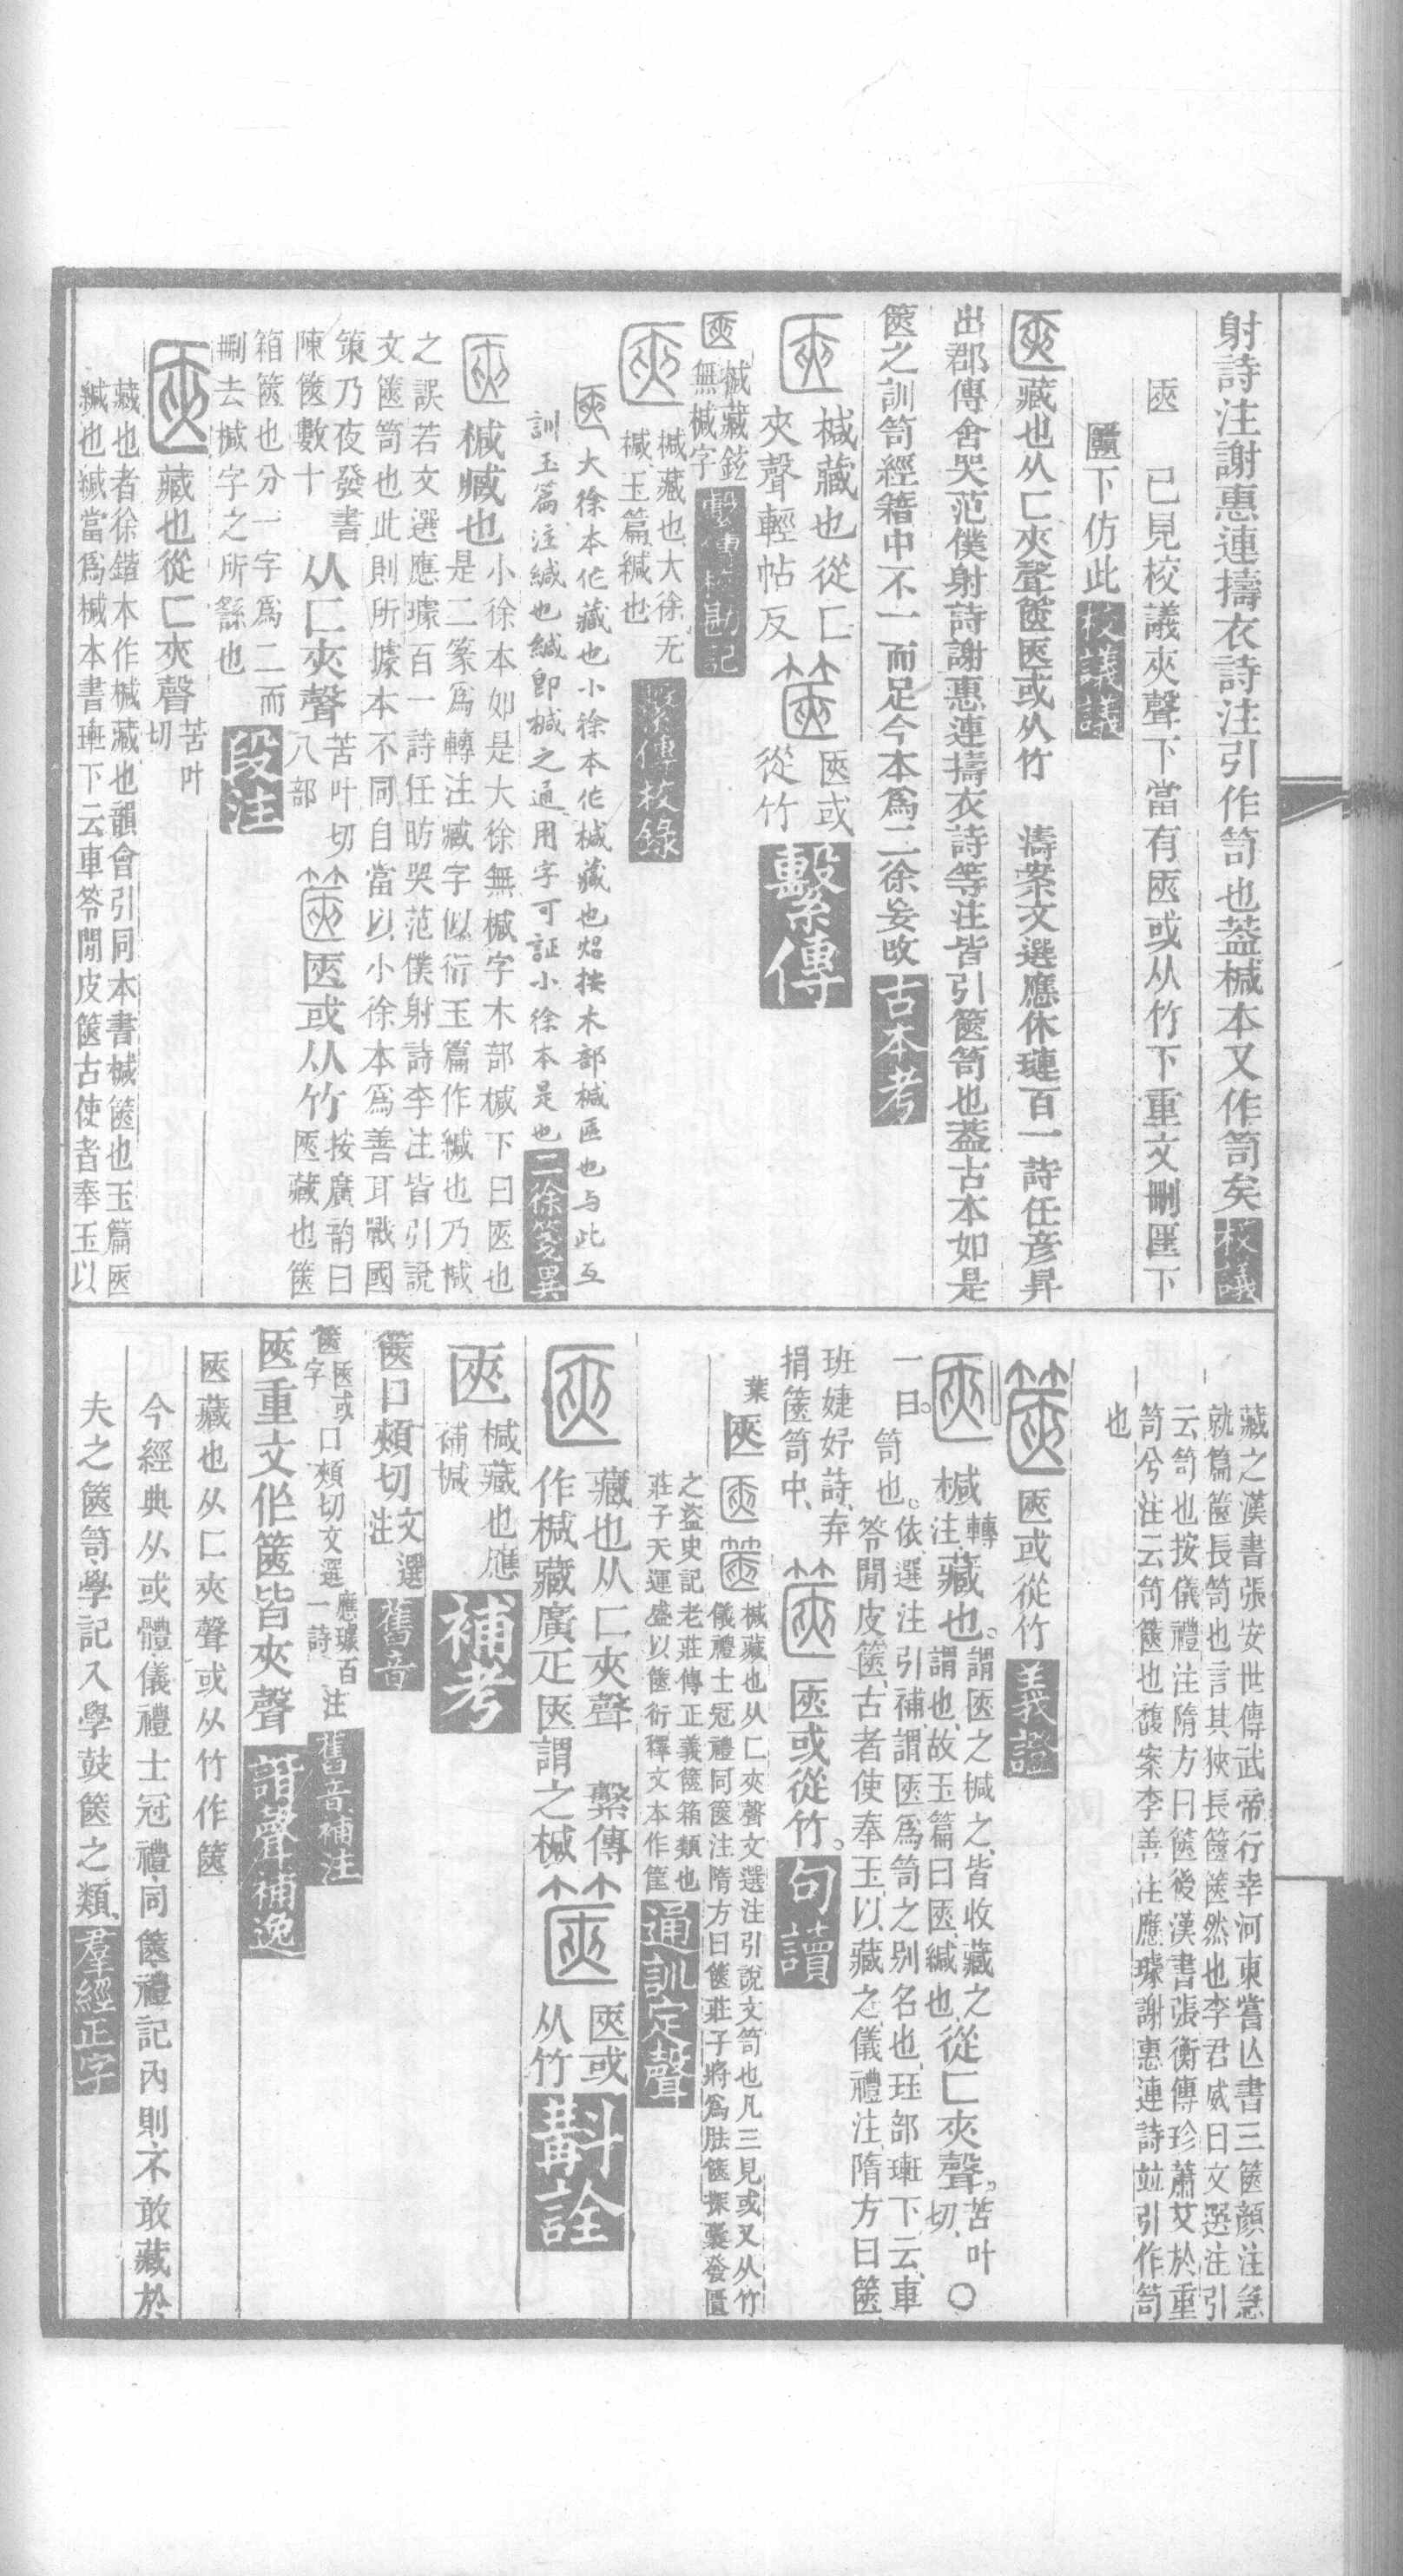 射詩注謝惠連擣衣詩注引作笥也葢椷本又作笥矣 校議
匧　已見校議夾聲下當有匧或从竹下重文刪匩下
匷下仿此 校議議
匧藏也从匚夾聲篋匧或从竹　濤案文選應休璉百一詩任彥昇
出郡傳舍哭范僕射詩謝惠連擣衣詩等注皆引篋笥也葢古本如是
篋之訓笥經籍中不一而足今本爲二徐妄改 古本考
匧 椷藏也從匚
夾聲輕帖反 篋 匧或
從竹 繫傳
匧 椷藏鉉
無椷字 繫傳校勘記
匧 椷藏也大徐无
椷玉篇緘也 繫傳校錄
匧大徐本作藏也小徐本作椷藏也炤按木部椷匧也与此互
訓玉篇注緘也緘卽椷之通用字可証小徐本是也 二徐箋異
匧 椷藏也 小徐本如是大徐無椷字木部椷下曰匧也
是二篆爲轉注藏字似衍玉篇作緘也乃椷
之誤若文選應璩百一詩任昉哭范僕射詩李注皆引說
文篋笥也此則所據本不同自當以小徐本爲善耳戰國
策乃夜發書
陳篋數十 从匚夾聲 苦叶切
八部 篋 匧或从竹 按廣韵曰
匧藏也篋
箱篋也分一字爲二而
刪去椷字之所繇也 段注
匧 藏也從匚夾聲 苦叶
切
藏也者徐鍇本作椷藏也韻會引同本書椷篋也玉篇匧
緘也緘當爲椷本書㻫下云車笭閒皮篋古使者奉玉以
藏之漢書張安世傳武帝行幸河東嘗亾書三篋顏注急
就篇篋長笥也言其狹長篋篋然也李君威曰文選注引
云笥也按儀禮注隋方曰篋後漢書張衡傳珍蕭艾於重
笥兮注云笥篋也馥案李善注應璩謝惠連詩竝引作笥
也
篋 匧或從竹 義證
匧 椷 轉
注 藏也。 謂匧之椷之、皆收藏之
謂也、故玉篇曰匧、緘也、 從匚夾聲。 苦叶
切、 〇
一曰。笥也。 依選注引補、謂匧爲笥之別名也、玨部㻫下云、車
笭閒皮篋、古者使奉玉、以藏之、儀禮注隋方曰篋、
班婕妤詩、弃
捐篋笥中、 篋 匧或從竹。 句讀
葉 匧 匧 篋 椷藏也从匚夾聲文選注引說文笥也凡三見或又从竹
儀禮士冠禮同篋注隋方曰篋莊子將爲胠篋探囊發匱
之盜史記老莊傳正義篋箱類也
莊子天運盛以篋衍釋文本作筐 通訓定聲
匧 藏也从匚夾聲　繫傳
作椷藏廣疋匧謂之椷 篋 匧或
从竹 斠詮
匧 椷藏也應
補椷 補考
篋口頰切 文選
注 舊音
篋 匧或
字 口頰切文選 應璩百
一詩 注 舊音補注
匧重文作篋皆夾聲 諧聲補逸
匧藏也从匚夾聲或从竹作篋
今經典从或體儀禮士冠禮同篋禮記內則不敢藏於
夫之篋笥學記入學鼓篋之類 羣經正字